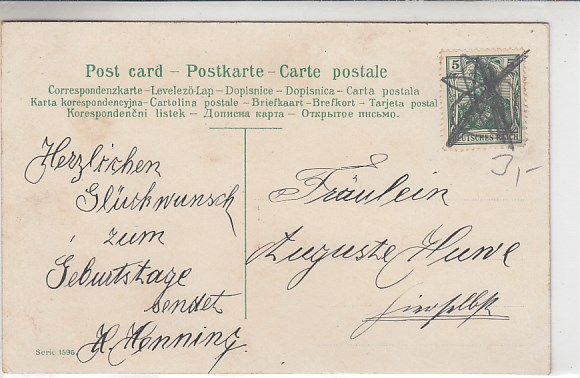 Post card – Postkarte – Carte postale
Correspondenzkarte – Levelező-Lap – Dopisnice – Dopisnica – Carta postala
Karta korespondencyjna – Cartolina postale – Briefkaart – Brefkort – Tarjeta postal
Korespondenční listek – Дописна карта – Открытое письмо.
5 5
DEUTSCHES REICH
3,-
Herzlichen
Glückwunsch
zum
Geburtstage
sendet
H. Henning.
Fräulein
Auguste Huwe
hierselbst
Serie 1596.